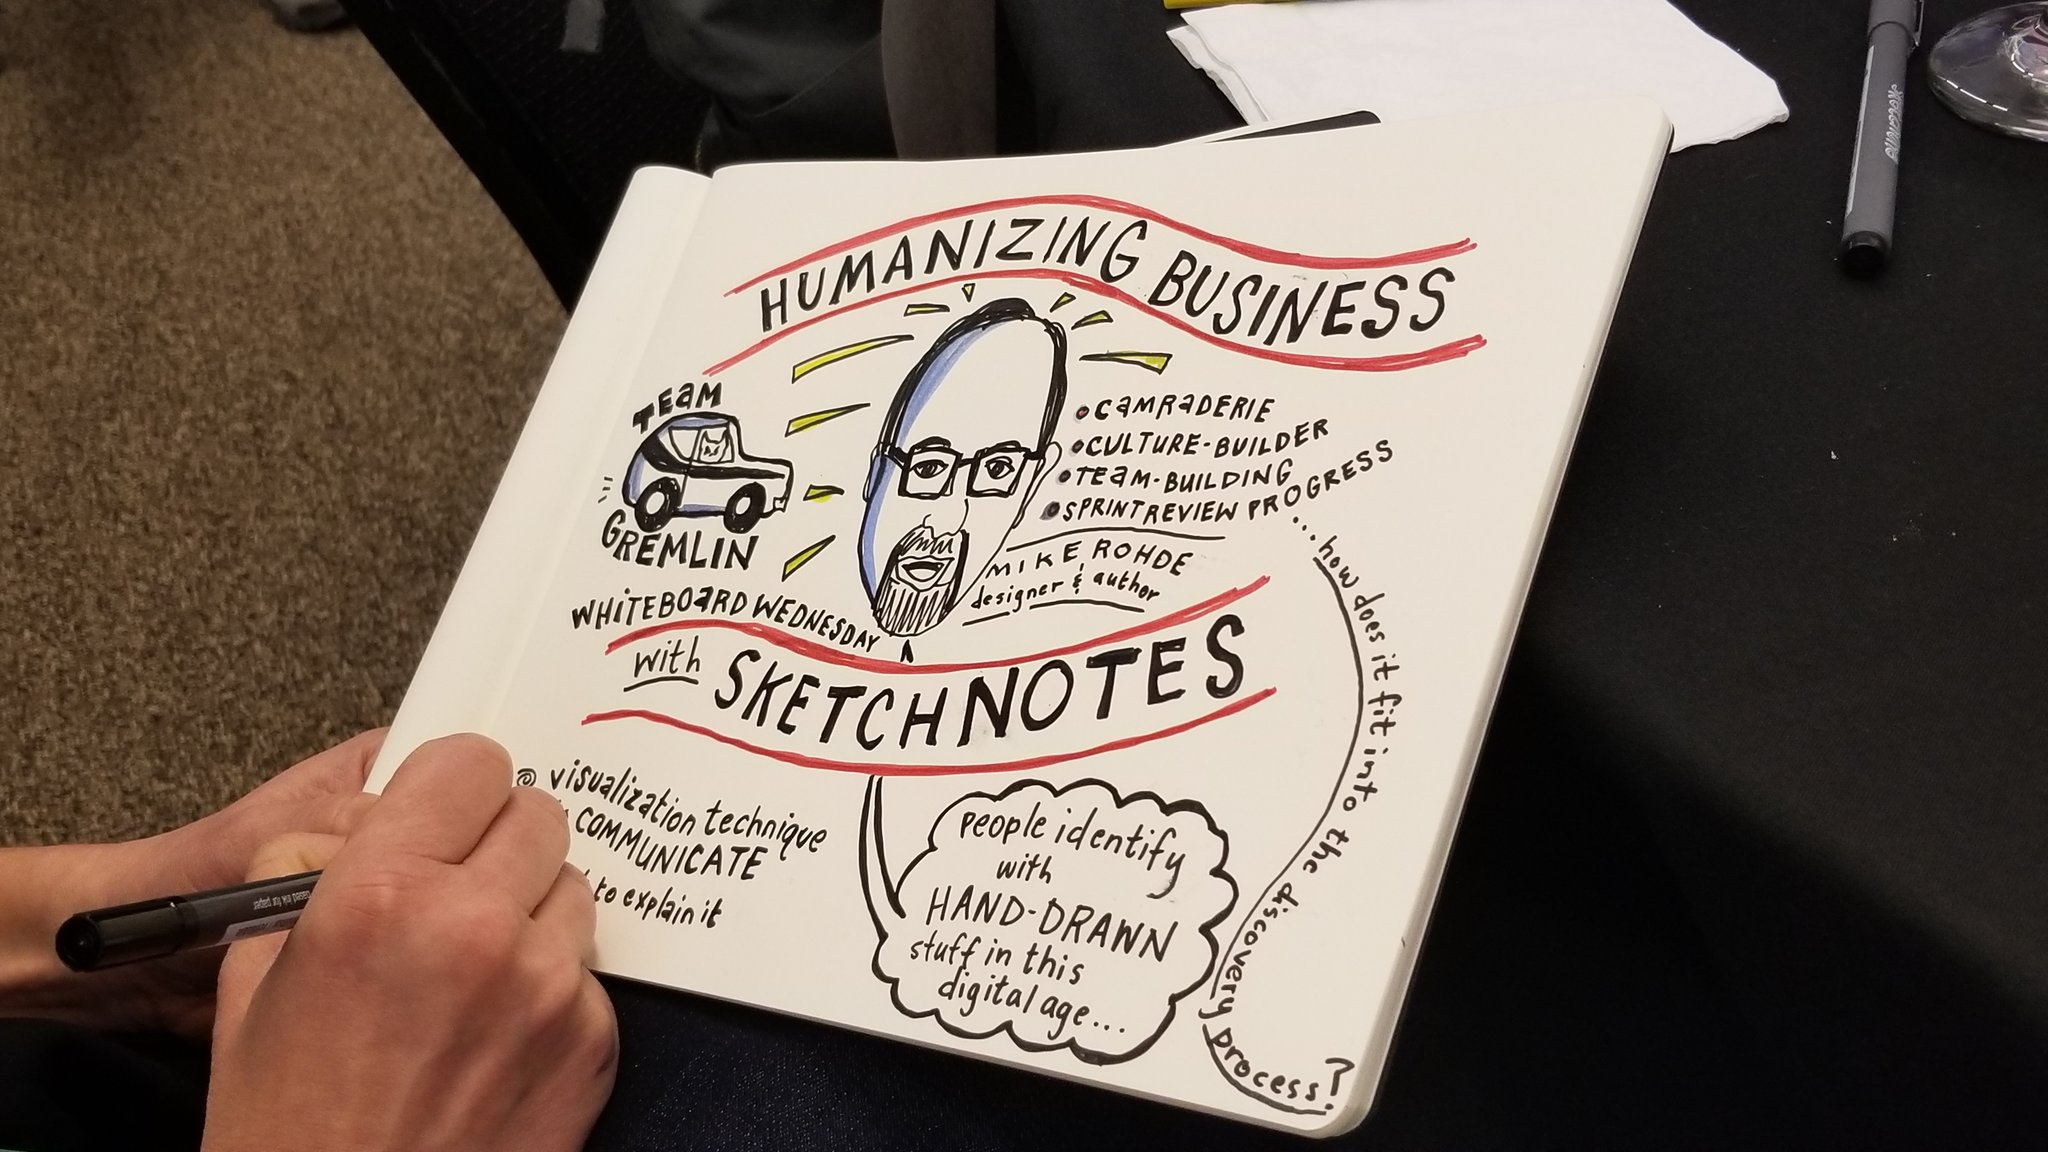 HUMANIZING BUSINESS
TEAM
GREMLIN
WHITEBOARD WEDNESDAY
• CAMRADERIE
• CULTURE-BUILDER
• TEAM-BUILDING
• SPRINT REVIEW PROGRESS
MIKE ROHDE
designer & author
with SKETCHNOTES
visualization technique
COMMUNICATE
to explain it
people identify
with
HAND-DRAWN
stuff in this
digital age...
...how does it fit into the discovery process?
based ink for paper